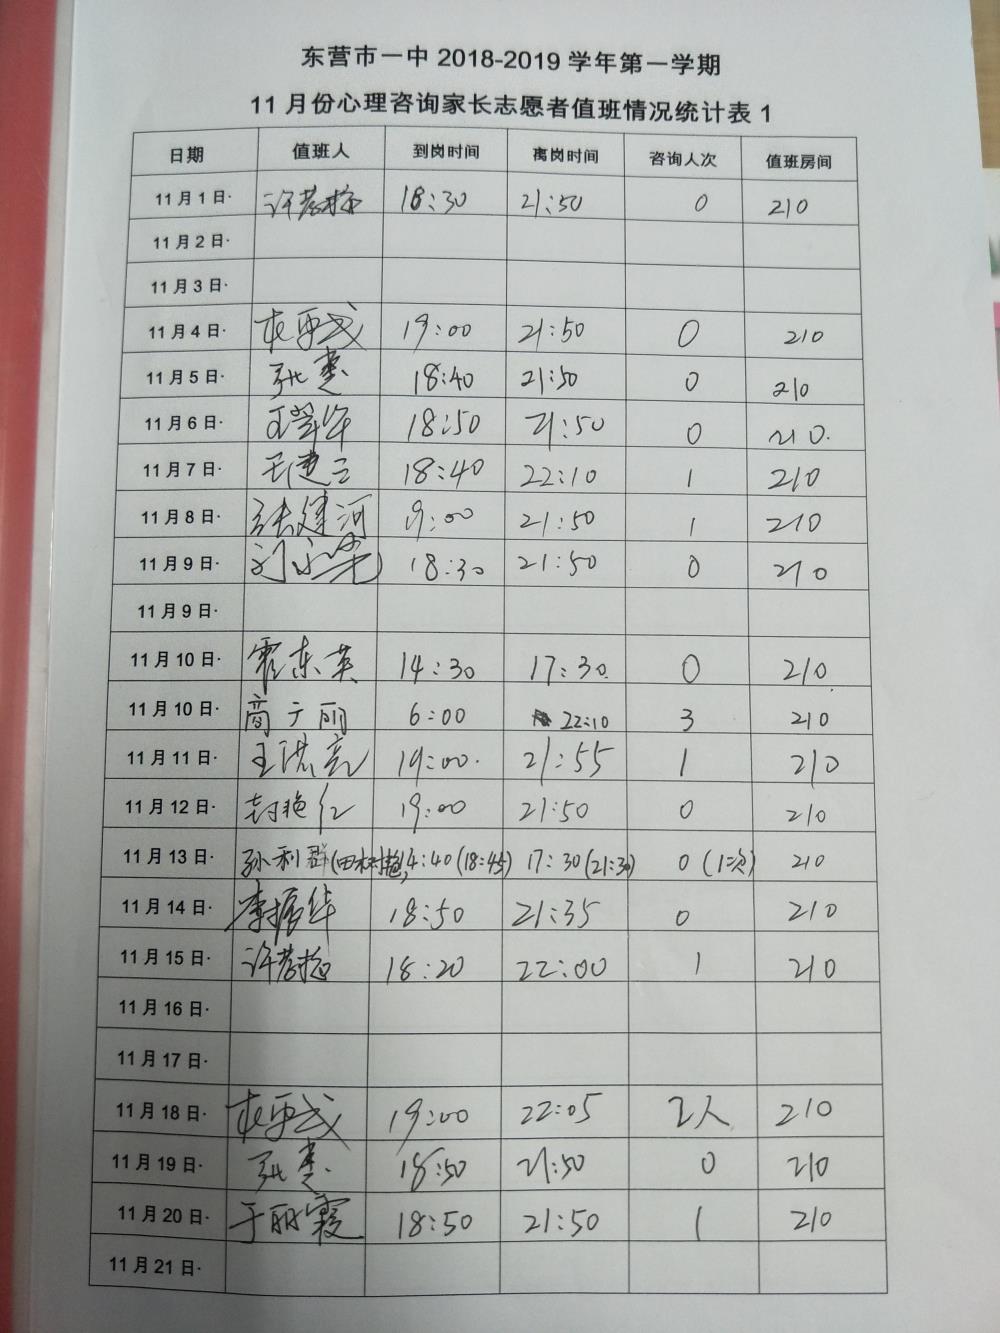 东营市一中 2018-2019 学年第一学期
11 月份心理咨询家长志愿者值班情况统计表 1
日期 值班人 到岗时间 离岗时间 咨询人次 值班房间
11 月 1 日· 18:30 21:50 0 210
11 月 2 日·
11 月 3 日·
11 月 4 日· 19:00 21:50 0 210
11 月 5 日· 张惠 18:40 21:50 0 210
11 月 6 日· 18:50 21:50 0 210
11 月 7 日· 18:40 22:10 1 210
11 月 8 日· 张建河 19:00 21:50 1 210
11 月 9 日· 18:30 21:50 0 210
11 月 9 日·
11 月 10 日· 霍东英 14:30 17:30 0 210
11 月 10 日· 商广丽 6:00 22:10 3 210
11 月 11 日· 王洪亮 19:00 21:55 1 210
11 月 12 日· 封艳红 19:00 21:50 0 210
11 月 13 日· 孙利群 14:40 (18:45) 17:30 (21:30) 0 (1次) 210
11 月 14 日· 李振华 18:50 21:35 0 210
11 月 15 日· 18:20 22:00 1 210
11 月 16 日·
11 月 17 日·
11 月 18 日· 19:00 22:05 2人 210
11 月 19 日· 张惠 18:50 21:50 0 210
11 月 20 日· 于丽霞 18:50 21:50 1 210
11 月 21 日·